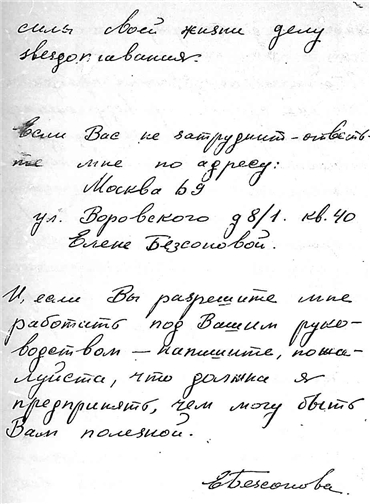 силы своей жизни делу
звездоплавания.
Если Вас не затруднит – ответь-
те мне по адресу:
Москва 69
ул. Воровского д 8/1. кв. 40
Елене Безсоновой.
И, если Вы разрешите мне
работать под Вашим руко-
водством – напишите, пожа-
луйста, что должна я
предпринять, чем могу быть
Вам полезной.
ЕБезсонова.